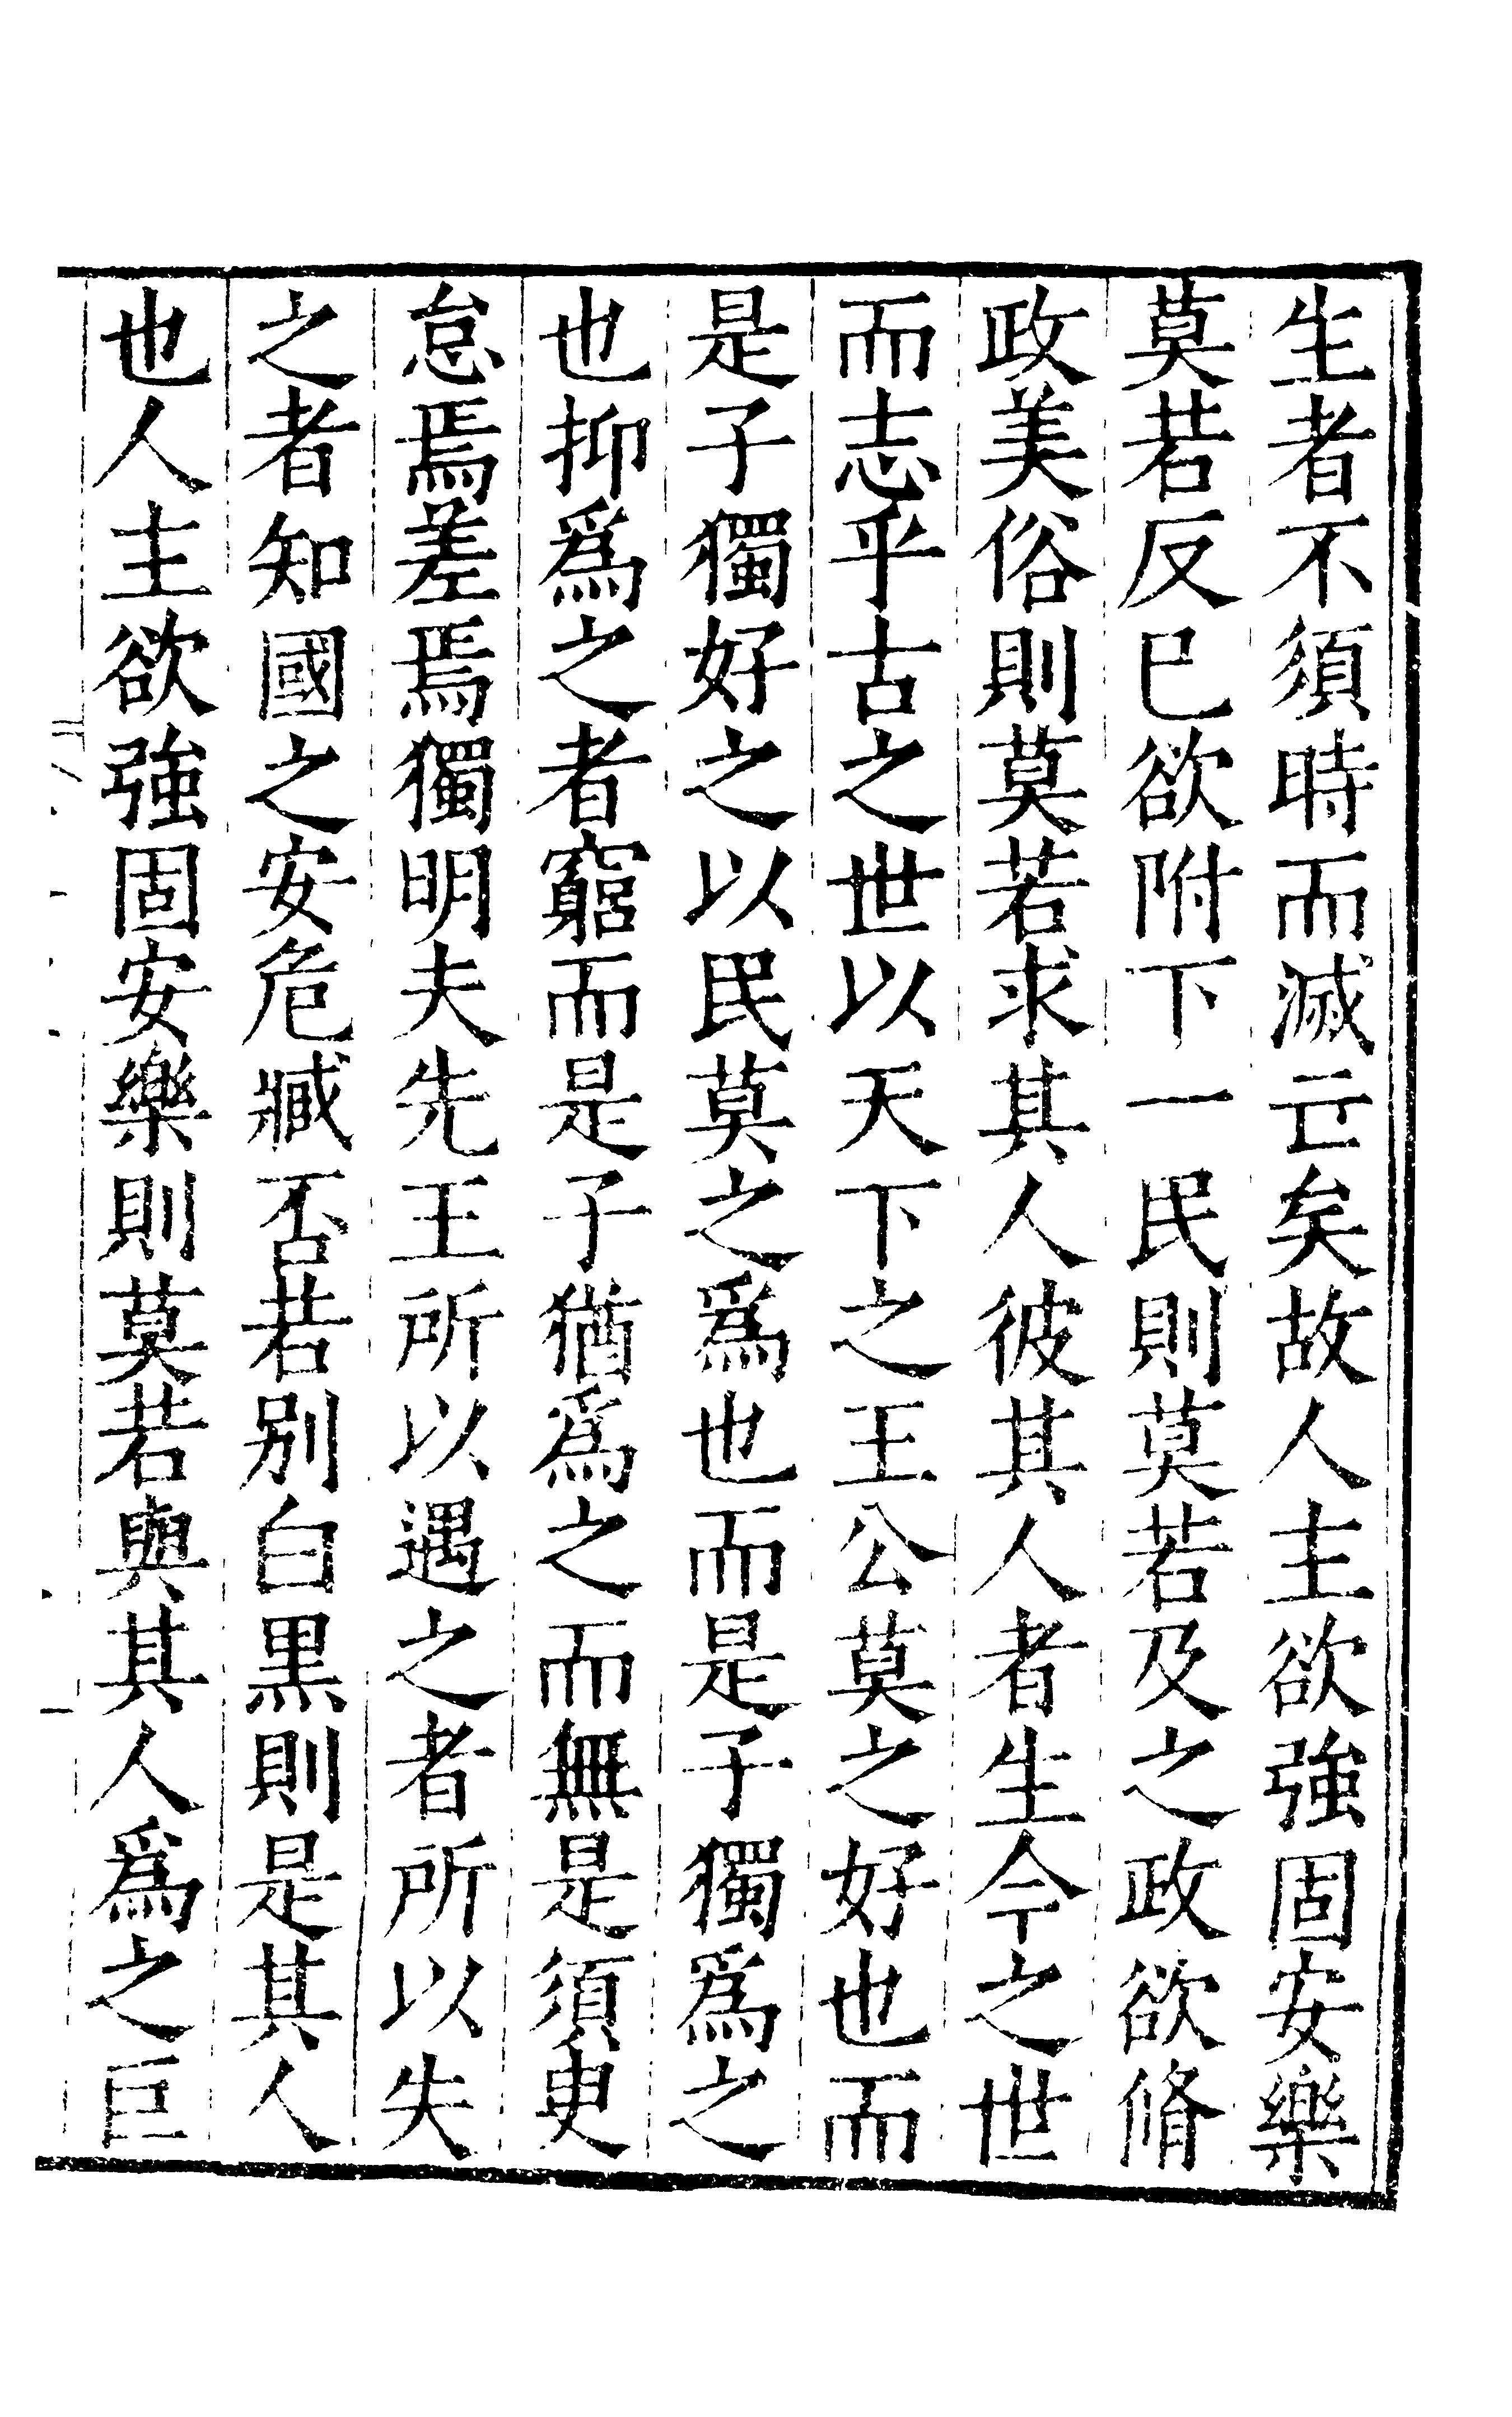 生者不須時而滅亡矣故人主欲強固安樂
莫若反已欲附下一民則莫若及之政欲脩
政美俗則莫若求其人彼其人者生今之世
而志乎古之世以天下之王公莫之好也而
是子獨好之以民莫之爲也而是子獨爲之
也抑爲之者窮而是子猶爲之而無是須臾
怠焉差焉獨明夫先王所以遇之者所以失
之者知國之安危臧否若别白黒則是其人
也人主欲強固安樂則莫若與其人爲之巨